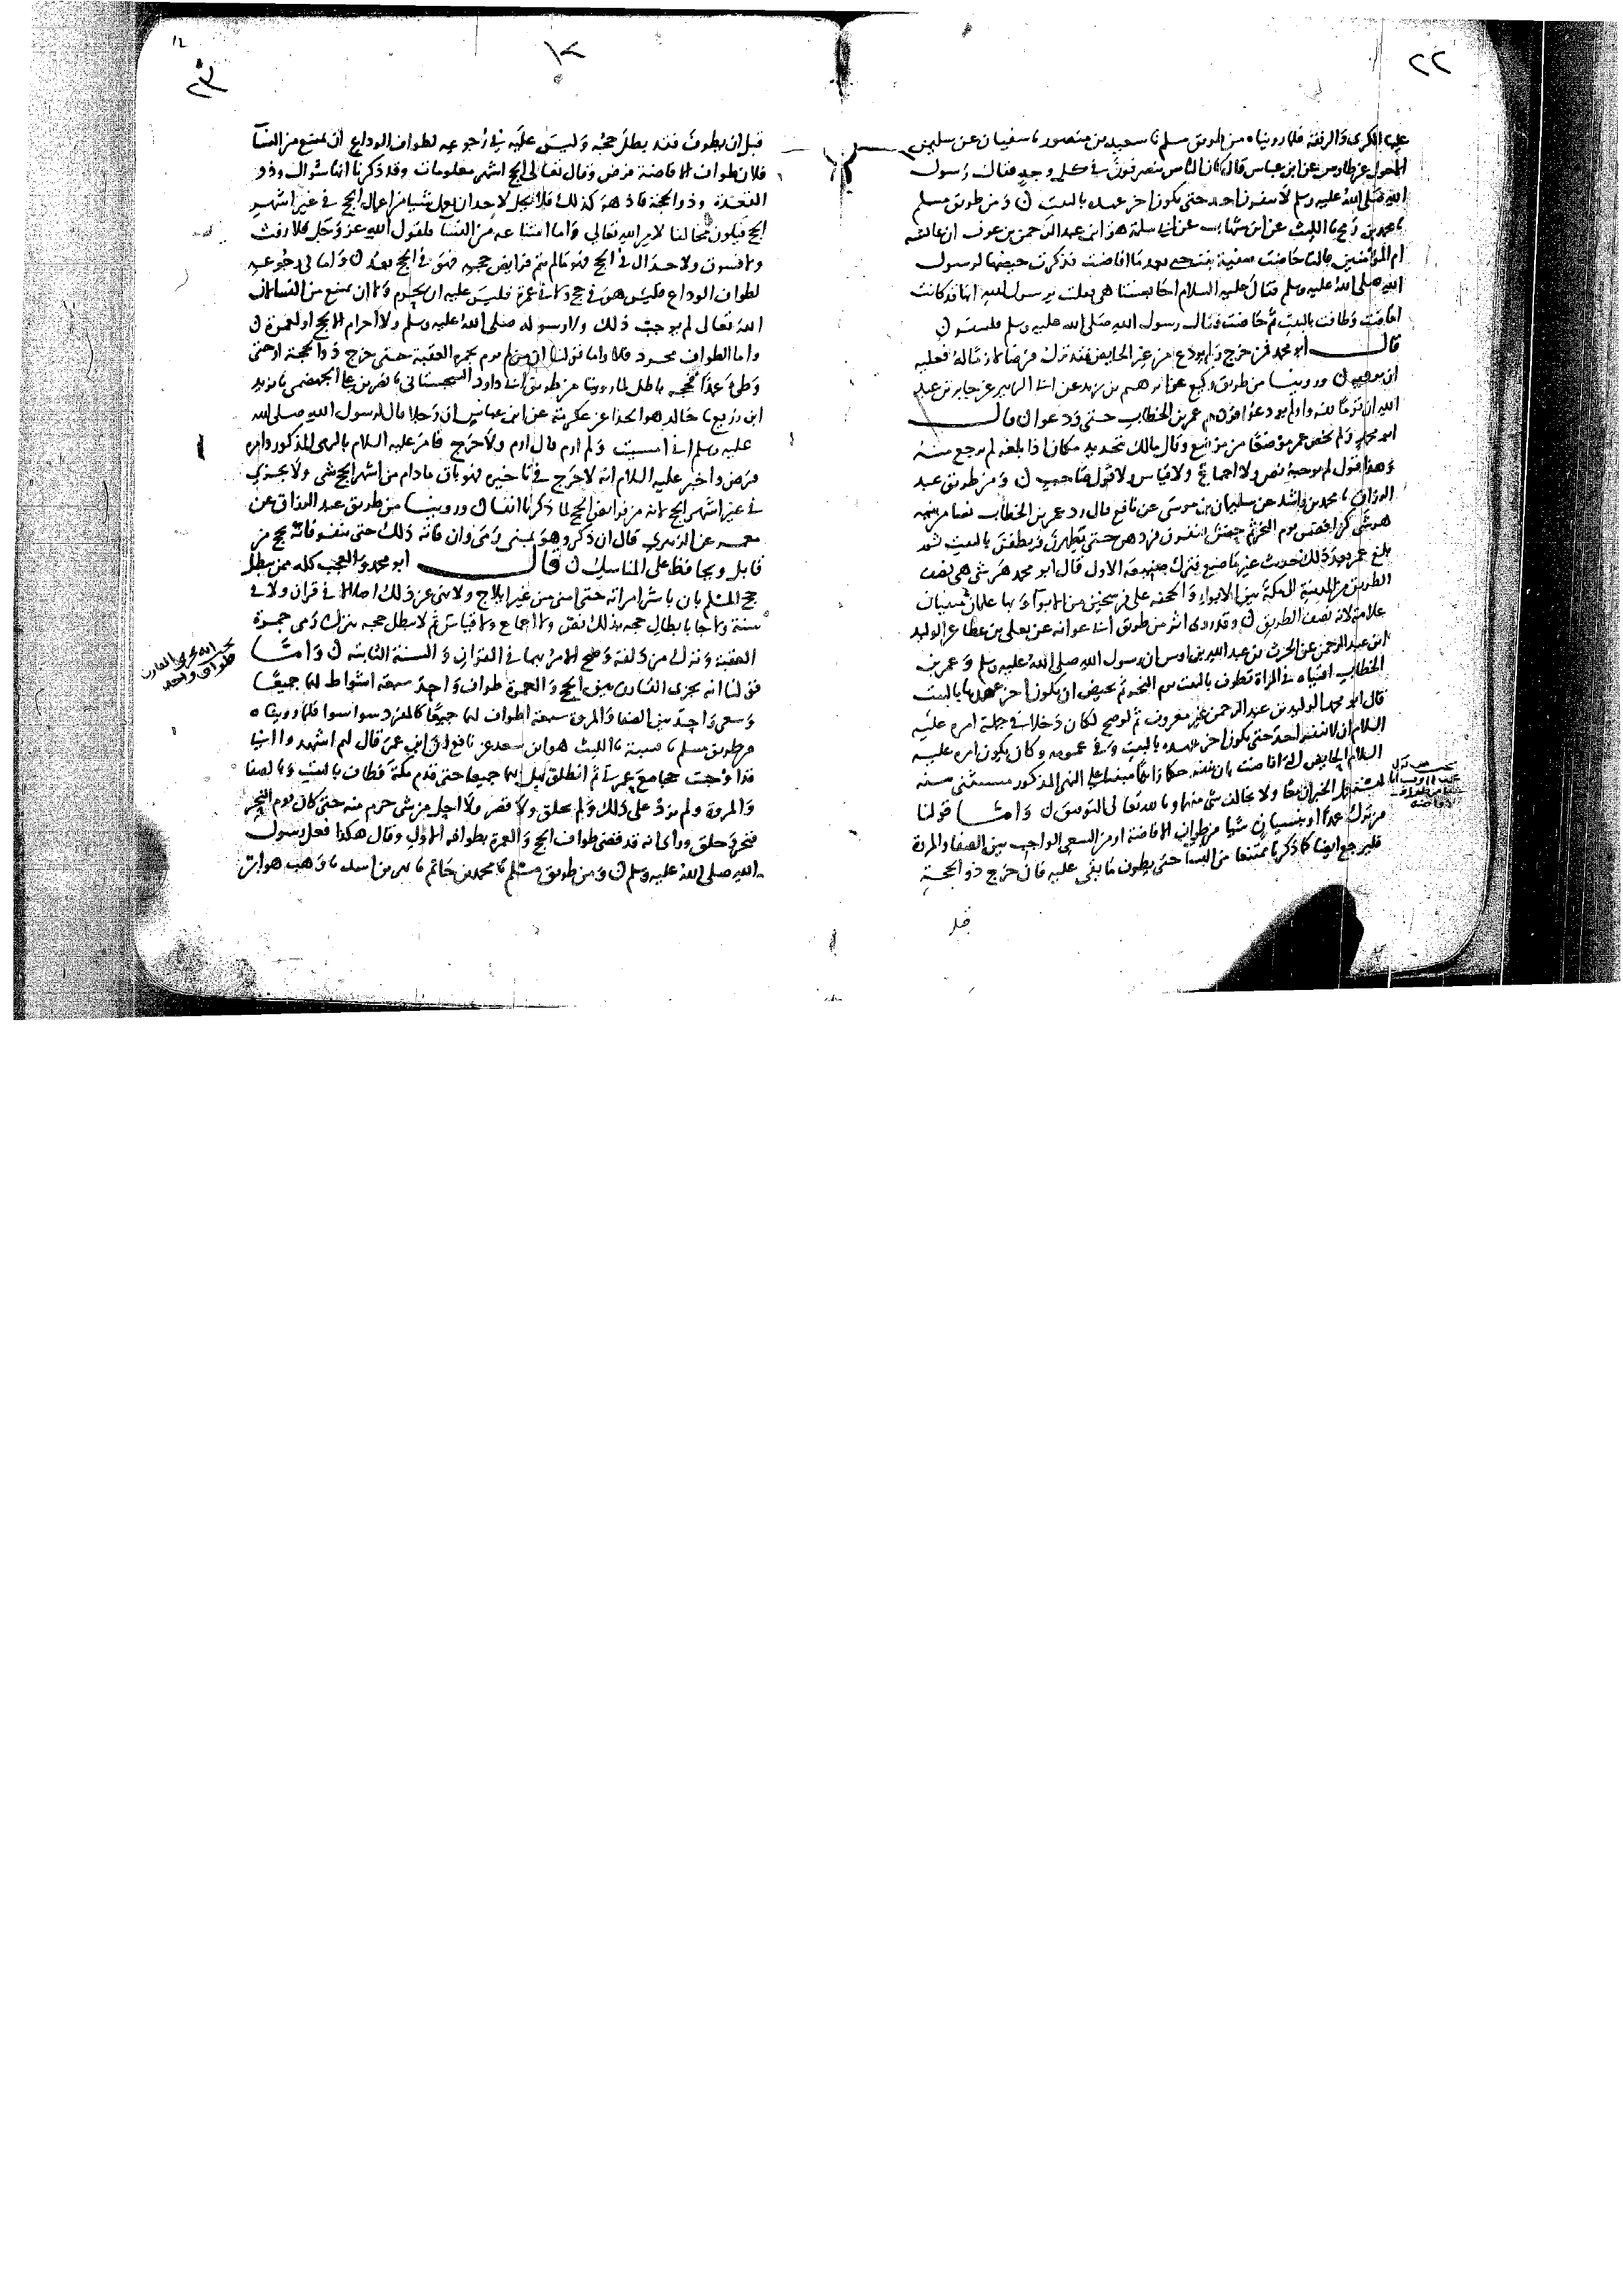 ٢٢
على الكرى والرفقة فلما رويناه من طريق مسلم نا سعيد بن منصور نا سفيان عن سليمن
الاحول عن طاوس عن ابن عباس قال كان الناس ينصرفون في كل وجه فقال رسول
الله صلى الله عليه وسلم لا ينفرن احد حتى يكون اخر عهده بالبيت ومن طريق مسلم
نا محمد بن رمح نا الليث عن ابن شهاب عن ابي سلمة هو ابن عبد الرحمن بن عوف ان عائشة
ام المؤمنين قالت حاضت صفية بنت حيي بعد ما افاضت فذكرت حيضها لرسول
الله صلى الله عليه وسلم فقال عليه السلام احابستنا هي فقلت يرسول الله انها قد كانت
افاضت وطافت بالبيت ثم حاضت فقال رسول الله صلى الله عليه وسلم فلتنفر
قال ابو محمد فمن خرج ولم يودع من غير الحايض فقد ترك فرضا لازما له فعليه
ان يوديه وروينا من طريق وكيع عن ابرهيم بن يزيد عن ابي الزبير عن جابر بن عبد
الله ان قوما نفروا ولم يودعوا فردهم عمر بن الخطاب حتى ودعوا قال
ابو محمد ولم يخص عمر موضعا من موضع وقال مالك بتحديد مكان اذا بلغه لم يرجع منه
وهذا قول لم يوجبه نص ولا اجماع ولا قياس ولا قول صاحب ومن طريق عبد
الرزاق نا محمد بن راشد عن سليمان بن موسى عن نافع قال رد عمر بن الخطاب نساء من ثنية
هرشى كن افضن يوم النحر ثم حضن فنفرن فردهن حتى يطهرن ويطفن بالبيت ثم
بلغ عمر بعد ذلك حديث غير ما صنع فترك صنيعه الاول قال ابو محمد هرشى هي نصف
الطريق من المدينة الى مكة بين الابواء والجحفة على فرسخين من الابواء وبها علمان مبنيان
علامة لانه نصف الطريق وقد روي اثر من طريق ابي عوانه عن يعلى بن عطاء عن الوليد
ابن عبد الرحمن عن الحرث بن عبد الله بن اوس ان رسول الله صلى الله عليه وسلم وعمر بن
الخطاب افتياه في المراة تطوف بالبيت يوم النحر ثم تحيض ان يكون اخر عهدها بالبيت
قال ابو محمد الوليد بن عبد الرحمن غير معروف ثم لو صح لكان داخلا في جملة امره عليه
السلام ان لا ينفر احد حتى يكون اخر عهده بالبيت وفي عمومه وكان يكون امره عليه
السلام الحايض التي افاضت بان تنفر حكما زائدا مبنيا على النهي المذكور مستثنى منه
ليستعمل الخبران معا ولا يخالف شي منهما وبالله تعالى التوفيق واما قولنا
من ترك عمدا او بنسيان شيا من طواف الافاضة او من السعي الواجب بين الصفا والمروة
فليرجع ايضا كما ذكرنا ممتنعا من النسا حتى يطوف ما بقي عليه فان خرج ذو الحجة
قبل
١٢
٢٣
قبل ان يطوف فقد بطل حجه وليس عليه في رجوعه لطواف الوداع ان يمتنع من النسا
فلان طواف الافاضة فرض وقال تعالى الحج اشهر معلومات وقد ذكرنا انها شوال وذو
القعدة وذو الحجة فاذ هو كذلك فلا يحل لاحد ان يعمل شيا من اعمال الحج في غير اشهر
الحج فيكون مخالفا لامر الله تعالى واما امتناعه من النسا فلقول الله عز وجل فلا رفث
ولا فسوق ولا جدال في الحج فهو ما لم يتم فرايض حجه فهو في الحج بعد واما في رجوعه
لطواف الوداع فليس هو في حج ولا في عمرة فليس عليه ان يحرم ولا ان يمتنع من النسا لان
الله تعالى لم يوجب ذلك ولا رسوله صلى الله عليه وسلم ولا احرام الا بحج او لعمرة
واما لطواف مجرد فلا واما قولنا ان من لم يرم جمرة العقبة حتى خرج ذو الحجة او حتى
وطئ عمدا فحجه باطل لما روينا من طريق ابي داود السجستاني نا نصر بن علي الجهضمي نا يزيد
ابن زريع نا خالد هو الحذا عن عكرمة عن ابن عباس ان رجلا قال لرسول الله صلى الله
عليه وسلم اني امسيت ولم ارم قال ارم ولا حرج فامر عليه السلام بالرمي المذكور وامره
فرض واخبر عليه السلام انه لا حرج في تاخيره فهو باق مادام من اشهر الحج شي ولا يجزي
في غير اشهر الحج لانه من فرايض الحج لما ذكرنا انفا وروينا من طريق عبد الرزاق عن
معمر عن الزهري قال ان ذكر وهو بمنى رمى وان فاته ذلك حتى ينفر فانه يحج من
قابل ويحافظ على المناسك قال ابو محمد والعجب كله ممن يبطل
حج المسلم بان باشر امراته حتى امنى من غير ايلاج ولا نهى عن ذلك اصلا في قران ولا في
سنة ولا جا بابطال حجه بذلك نص ولا اجماع ولا قياس ثم لا يبطل حجه بترك رمي جمرة
العقبة وترك مزدلفة وصح الامر بهما في القران والسنة الثابته واما
قولنا انه يجزي القارن بين الحج والعمرة طواف واحد سبعة اشواط لهما جميعا
وسعي واحد بين الصفا والمروة سبعة اطواف لهما جميعا كالمفرد سوا سوا فلما رويناه
من طريق مسلم نا قتيبة نا الليث هو ابن سعد عن نافع ان ابن عمر قال لهم اشهدوا اني
قد اوجبت حجا مع عمرتي ثم انطلق يهل بهما جميعا حتى قدم مكة فطاف بالبيت وبالصفا
والمروة ولم يزد على ذلك ولم يحلق ولا قصر ولا احل من شي حرم منه حتى كان يوم النحر
فنحر وحلق وراى انه قد قضى طواف الحج والعمرة بطوافه الاول وقال هكذا فعل رسول
الله صلى الله عليه وسلم ومن طريق مسلم نا محمد بن حاتم نا بهز بن اسد نا وهيب هو ابن